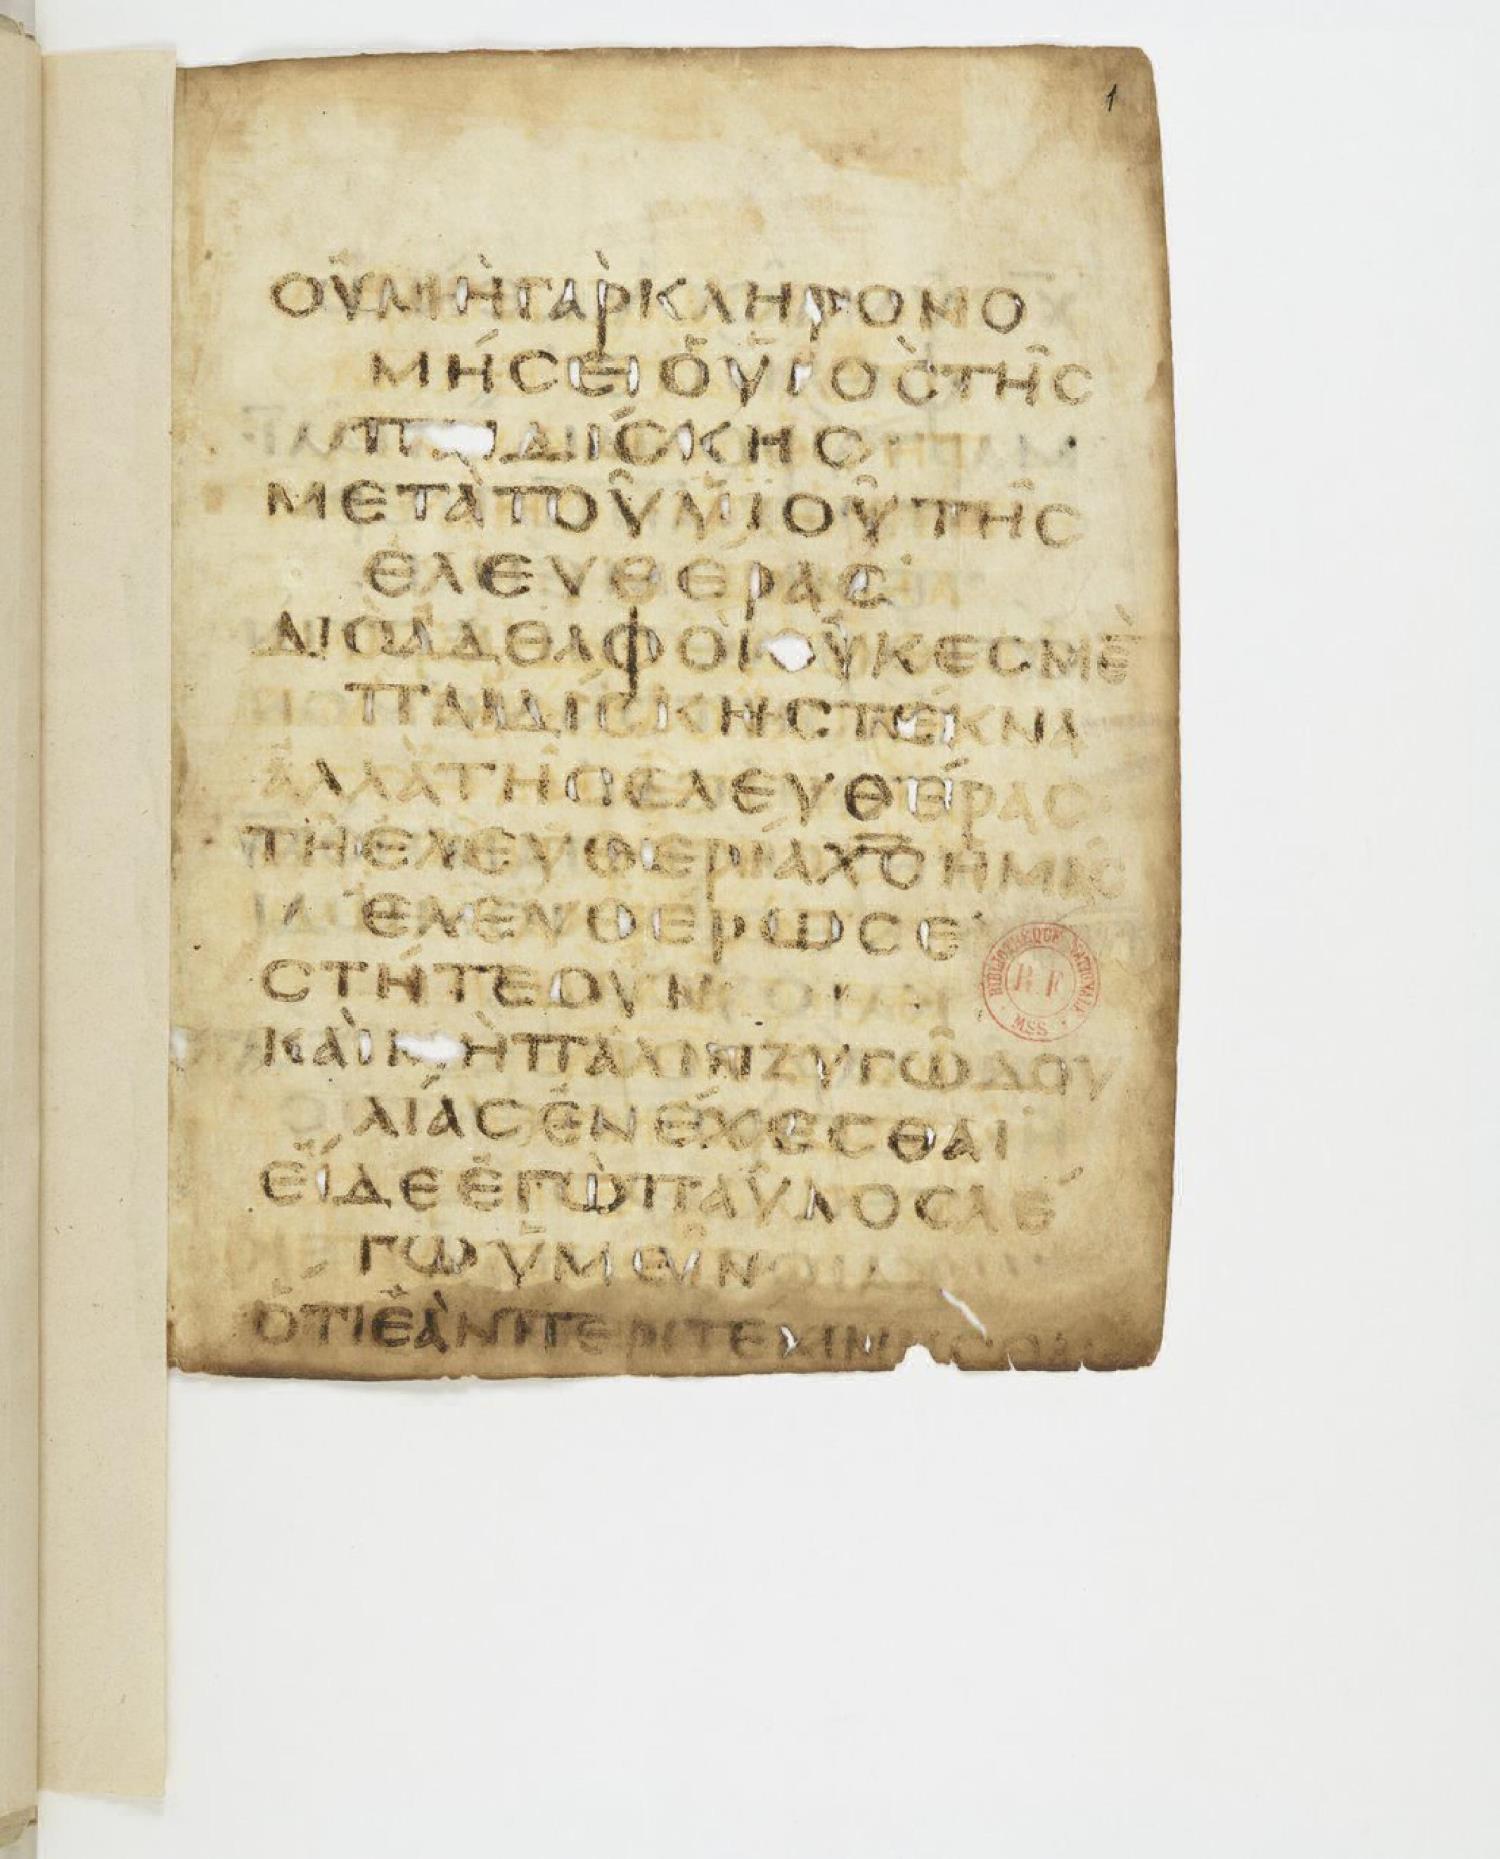 1
ΟΥ ΜΗ ΓΑΡ ΚΛΗΡΟΝΟ
ΜΗСΕΙ Ο ΥΙΟС ΤΗС
ΠΑΙΔΙСΚΗС
ΜΕΤΑ ΤΟΥ ΥΙΟΥ ΤΗС
ΕΛΕΥΘΕΡΑС
ΔΙΟ ΑΔΕΛΦΟΙ ΟΥΚ ΕСΜΕ̅
ΠΑΙΔΙСΚΗС ΤΕΚΝΑ
ΑΛΛΑ ΤΗС ΕΛΕΥΘΕΡΑС
ΤΗ ΕΛΕΥΘΕΡΙΑ Χ̅С̅ ΗΜΑС
ΕΛΕΥΘΕΡΩСΕ
СΤΗΤΕ ΟΥΝ
ΚΑΙ ΜΗ ΠΑΛΙΝ ΖΥΓΩ ΔΟΥ
ΛΙΑС ΕΝΕΧΕСΘΑΙ
ΕΙΔΕ ΕΓΩ ΠΑΥΛΟС ΛΕ
ΓΩ ΥΜΕΙΝ
ΟΤΙ ΕΑΝ ΠΕΡΙΤΕΜΝΗСΘΑΙ
BIBLIOTHÈQUE NATIONALE
R F
MSS